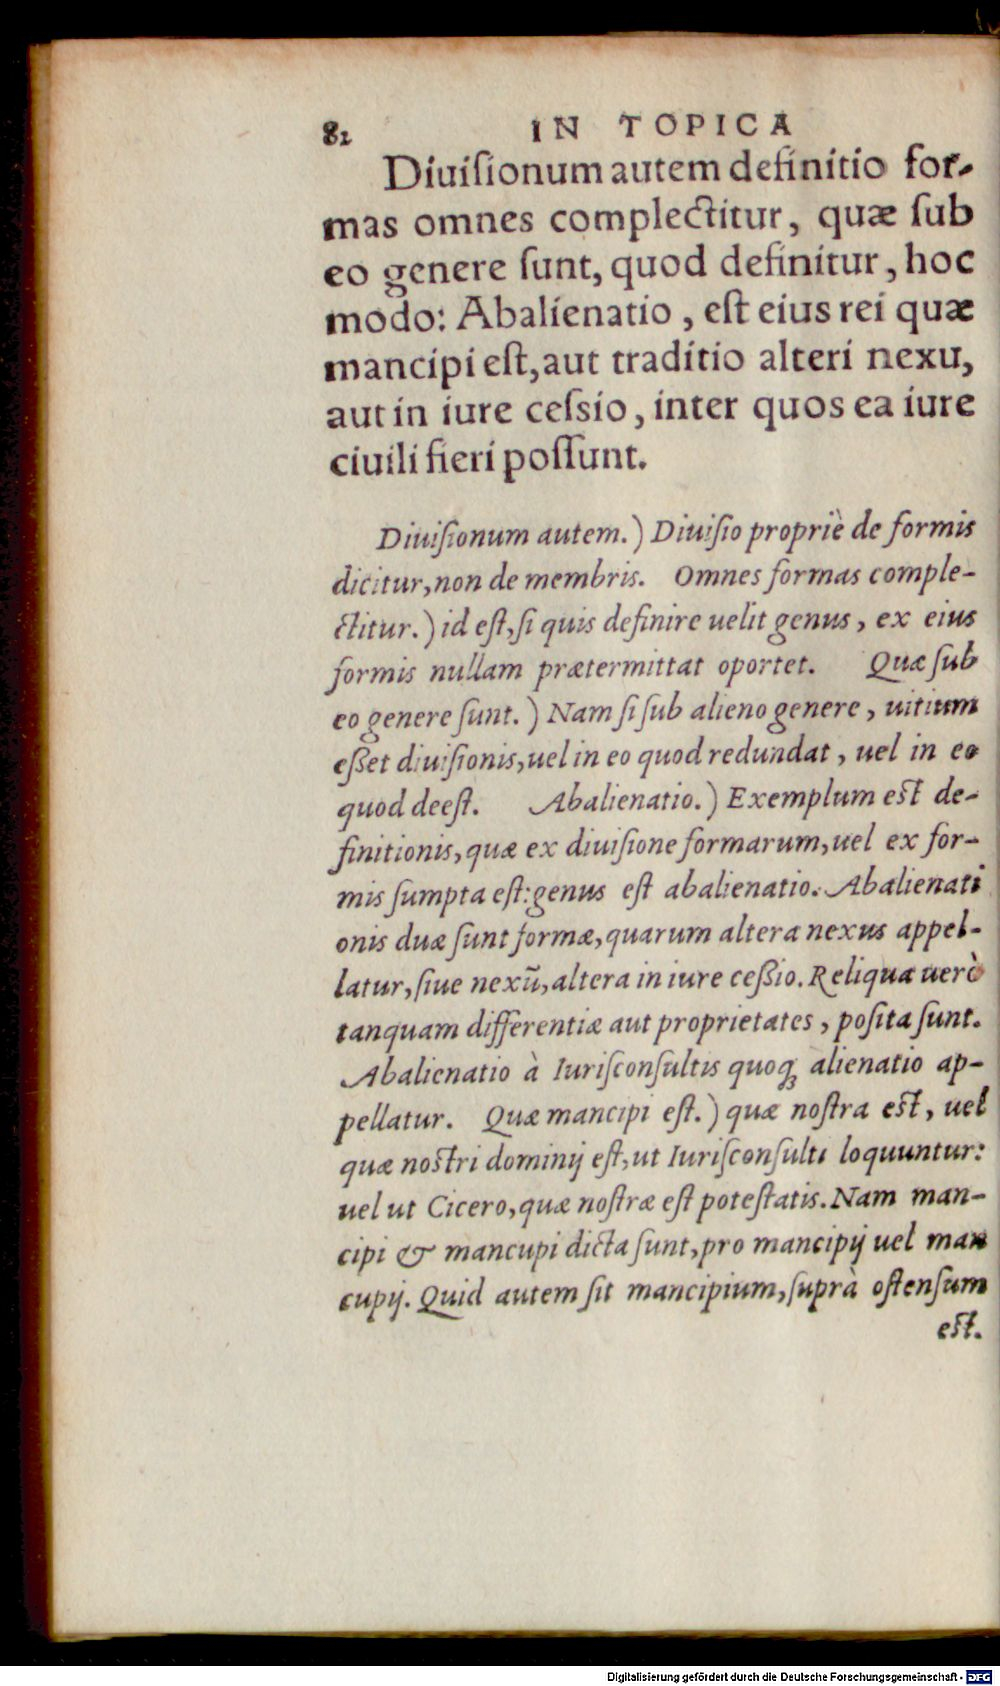 82 IN TOPICA
Diuiſionum autem definitio for-
mas omnes complectitur, quæ ſub
eo genere ſunt, quod definitur, hoc
modo: Abalienatio, eſt eius rei quæ
mancipi eſt, aut traditio alteri nexu,
aut in iure ceſsio, inter quos ea iure
ciuili fieri poſſunt.
Diuiſionum autem.) Diuiſio propriè de formis
dicitur, non de membris. Omnes formas comple-
ctitur.) id eſt, ſi quis definire uelit genus, ex eius
formis nullam prætermittat oportet. Quæ ſub
eo genere ſunt.) Nam ſi ſub alieno genere, uitium
eſſet diuiſionis, uel in eo quod redundat, uel in eo
quod deeſt. Abalienatio.) Exemplum eſt de-
finitionis, quæ ex diuiſione formarum, uel ex for-
mis ſumpta eſt: genus eſt abalienatio. Abalienati
onis duæ ſunt formæ, quarum altera nexus appel-
latur, ſiue nexũ, altera in iure ceſsio. Reliqua uerò
tanquam differentiæ aut proprietates, poſita ſunt.
Abalienatio à Iuriſconſultis quoq; alienatio ap-
pellatur. Quæ mancipi eſt.) quæ noſtra eſt, uel
quæ noſtri dominij eſt, ut Iuriſconſulti loquuntur:
uel ut Cicero, quæ noſtræ eſt poteſtatis. Nam man-
cipi & mancupi dicta ſunt, pro mancipij uel man
cupij. Quid autem ſit mancipium, ſuprà oſtenſum
eſt.
Digitalisierung gefördert durch die Deutsche Forschungsgemeinschaft - DFG